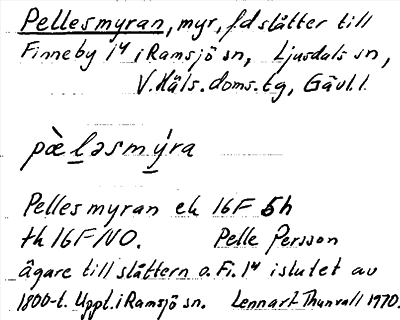 Pellesmyran, myr, f d slåtter till
Finneby 1⁴ i Ramsjö sn, Ljusdals sn,
V. Häls. doms. tg, Gävl. l.
pæ̀lǝsmýra
Pellesmyran ek 16F 5h
tk 16F NO. Pelle Persson
ägare till slåttern o. Fi. 1⁴ i slutet av
1800-t. Uppl. i Ramsjö sn. Lennart Thunvall 1970.